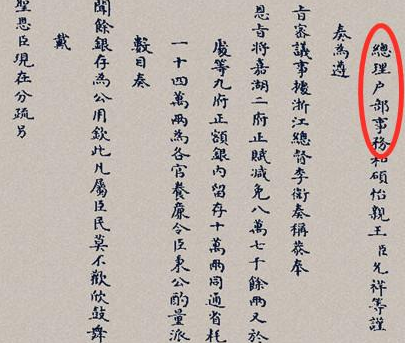 總理户部事務和碩怡親王臣允祥等謹
奏為遵
旨審議事據浙江總督李衛奏稱恭奉
恩旨將嘉湖二府正賦減免八萬七千餘兩又於
處等九府正額銀內留存十萬兩同通省耗
一十四萬兩為各官養廉令臣秉公酌量派
數目奏
聞餘銀存為公用欽此凡屬臣民莫不歡欣鼓舞
戴
聖恩臣現在分疏另